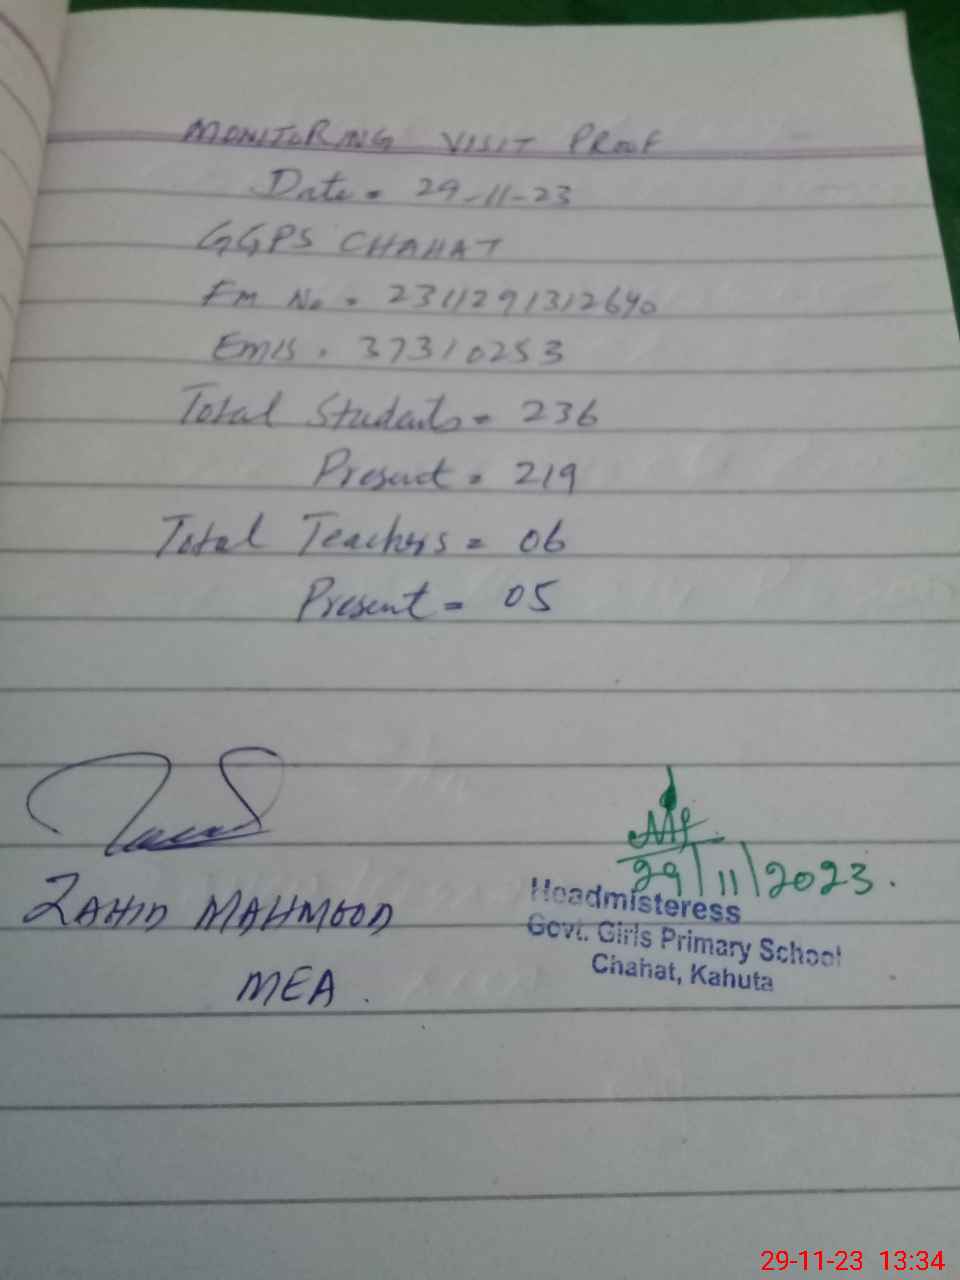 MONITORING VISIT PROOF
Date = 29-11-23
GGPS CHAHAT
Fm No. = 2311291312640
Emis. 37310253
Total Students = 236
Present = 219
Total Teachers = 06
Present = 05
ZAHID MAHMOOD
MEA.
29/11/2023.
Headmisteress
Govt. Girls Primary School
Chahat, Kahuta
29-11-23 13:34